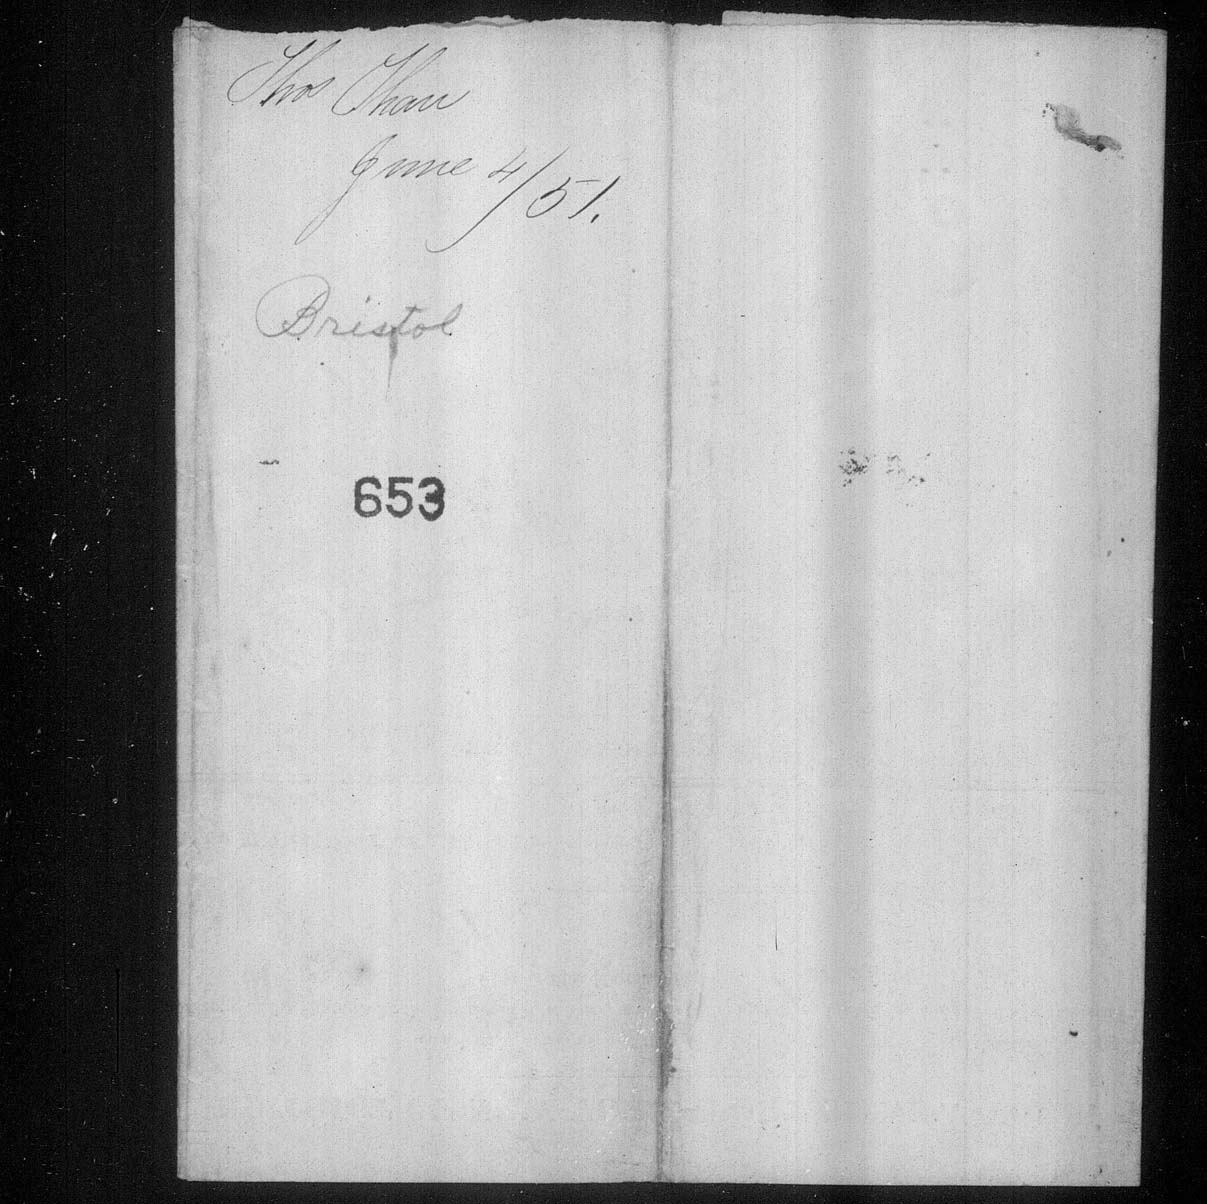 Thos Thau
June 4/51.
Bristol
653